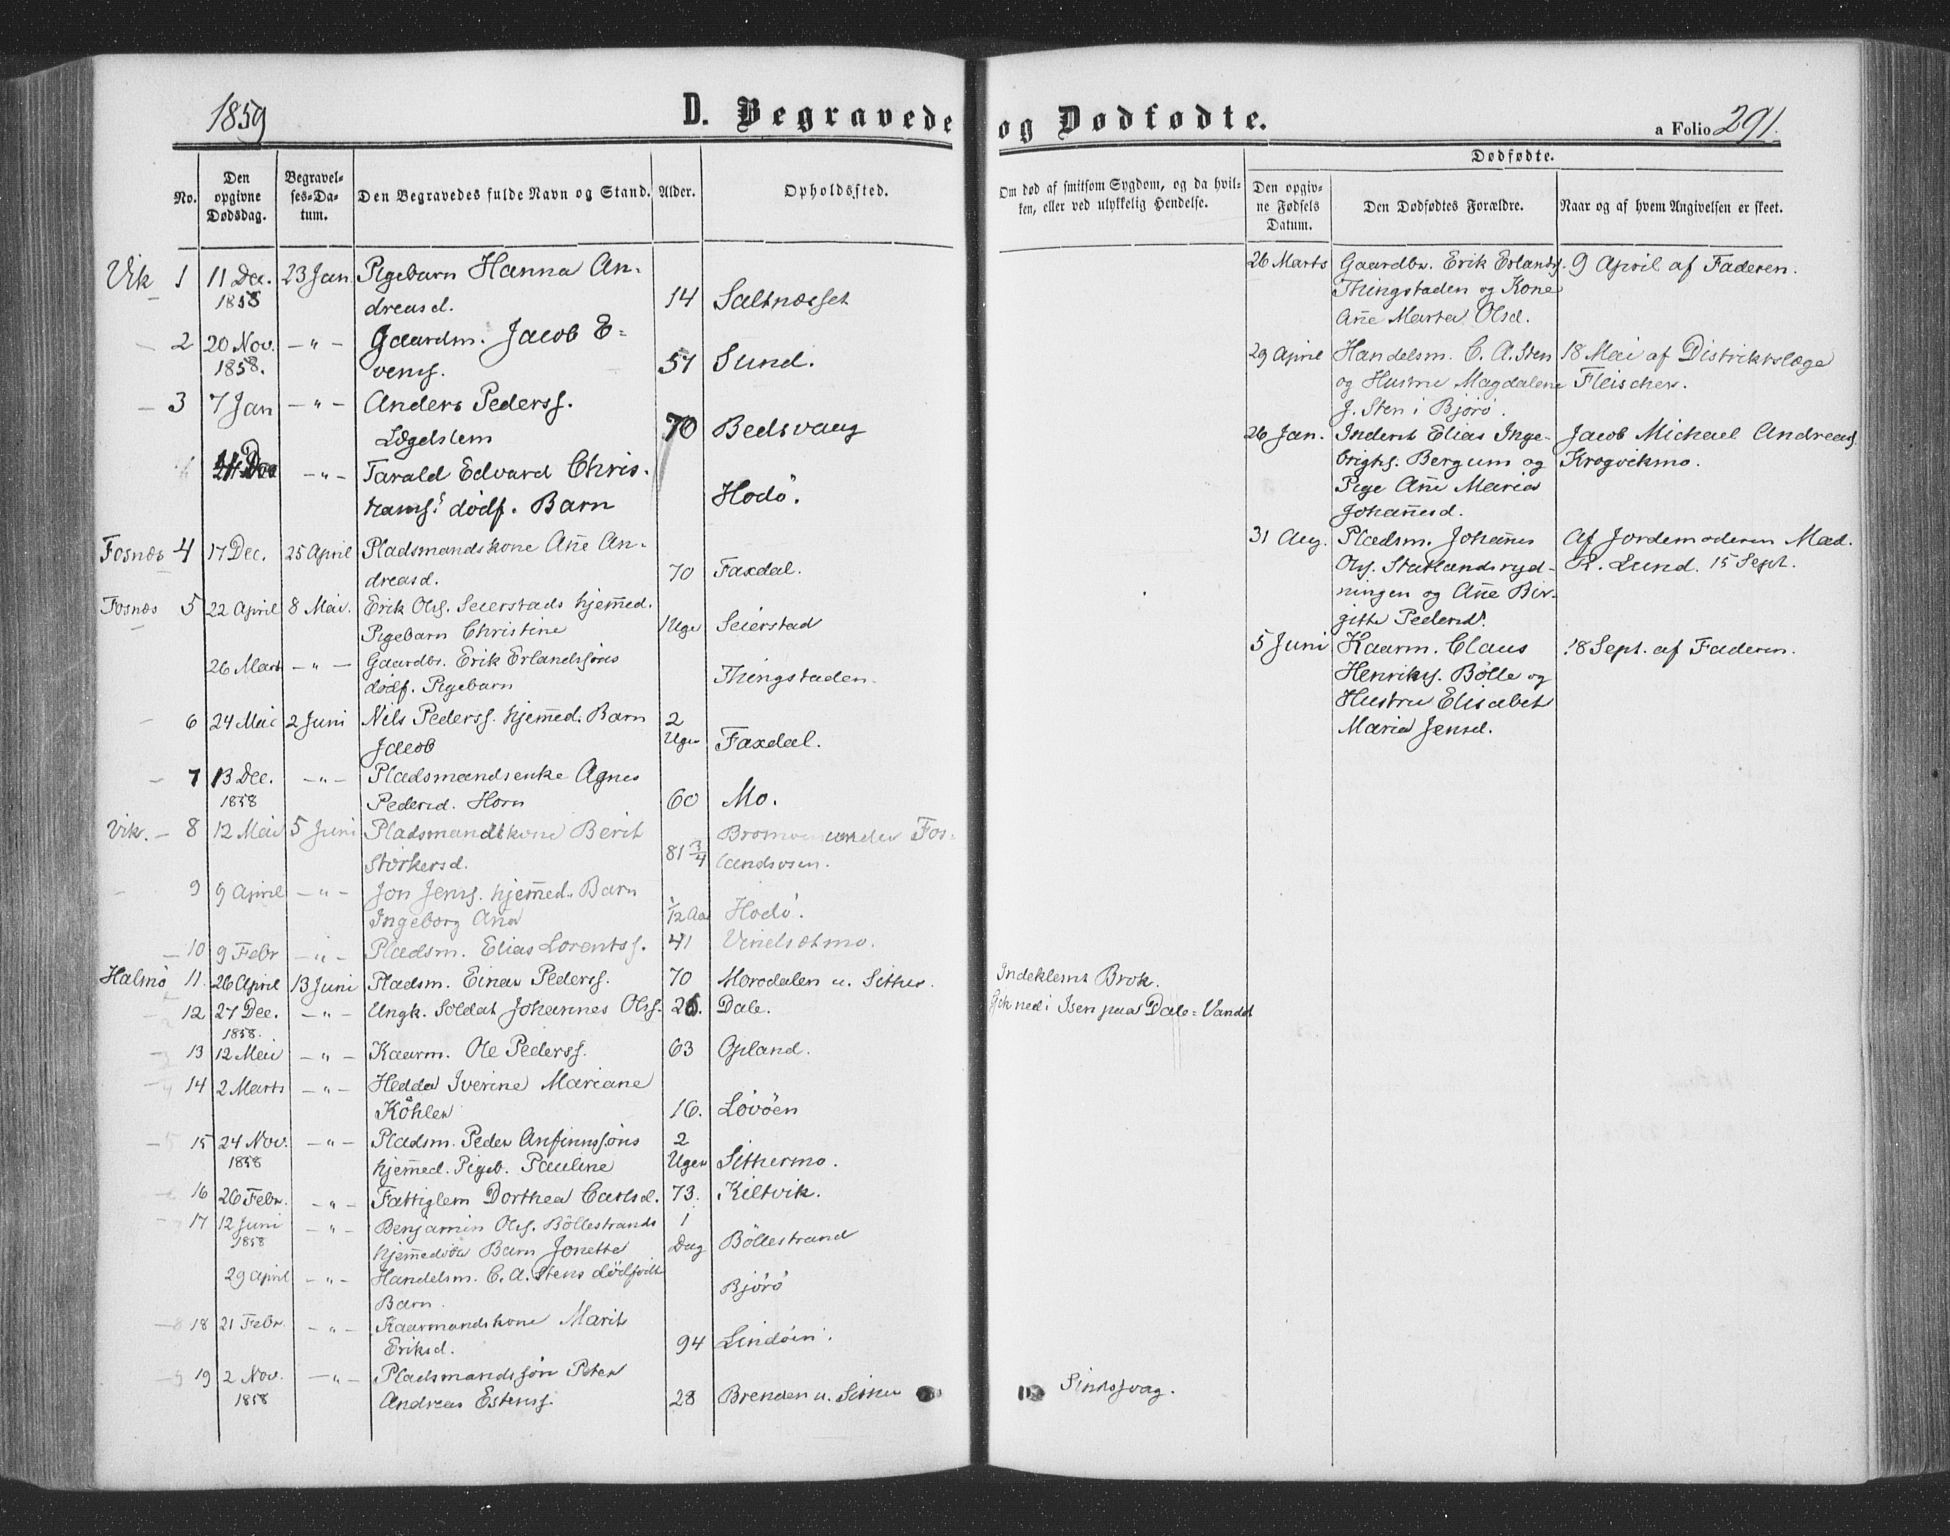 1859
D. Begravede og Dødfødte.
a Folio 291.
No.
Den opgivne Dødsdag.
Begravelses-Datum.
Den Begravedes fulde Navn og Stand.
Alder.
Opholdssted.
Om død af smitsom Sygdom, og da hvilken, eller ved ulykkelig Hendelse.
Dødfødte.
Den opgivne Fødsels Datum.
Den Dødfødtes Forældre.
Naar og af hvem Angivelsen er skeet.
Vik 1 11 Dec. 23 Jan Pigebarn Hanna An-
1858 dreasd. 14 Saltnæsset
2 20 Nov. -"- Gaardm. Jacob E-
1858. vens. 57 Sund.
3 7 Jan -"- Anders Peders.
Lægdslem 70 Bedsvaag
-"- Tarald Edvard Chris-
dødf. Barn Hodø.
Fosnæs 4 17 Dec. 25 April Pladsmandskone Ane An-
dreasd. 70 Faxdal.
Fosnæs 5 22 April 8 Mai. Erik Ols. Seierstads hjemed.
Pigebarn Christine 1 Uge Seierstad
26 Marts -"- Gaardbr. Erik Erlandsjøns
dødf. Pigebarn Thingstaden.
6 24 Mai 2 Juni Nils Peders. hjemed. Barn 2
Jacob Uger Faxdal.
7 13 Dec. -"- Pladsmandsenke Agnes
1858 Pedersd. Horn 60 Mo.
Vik. 8 12 Mai 5 Juni Pladsmandskone Berit
Storkersd. 81 3/4 under Fos-
landsosen.
9 9 April -"- Jon Jens. hjemed. Barn
Ingeborg Ana 1/12 Aar Hodø.
10 9 Febr -"- Pladsm. Elias Lorents. 41 Vindsetmo.
Halmø 11. 26 April 13 Juni Pladsm. Einar Peders. 70 Morodalen u. Sitter. Indeklemt Brok.
12 27 Dec. -"- Ungk. Soldat Johannes Ols. 26. Dale. Gik ned i Isen paa Dale-Vandet
1858.
13 12 Mai -"- Kaarm. Ole Peders. 63 Opland.
14 2 Marts -"- Hedda Iverine Mariane
Köhler 16. Løvøen
15 24 Nov. -"- Pladsm. Peder Anfinnsjøns 2
1858 hjemed. Pigeb. Pauline Uger Sithermo.
16 26 Febr. -"- Fattiglem Dorthea Carlsd. 73. Kiltvik.
17 12 Juni -"- Benjamin Ols. Bøllestrands 1
1858 hjemedøbt Barn Jonette Dag Bøllestrand
29 April -"- Handelsm. C. A. Stens dødfødt
Barn. Bjørø
18 21 Febr. -"- Kaarmandskone Marit
Eriksd. 94 Lindøen.
19 2 Nov. -"- Pladsmandssøn Peter
1858 Andreas Estens. 28 Brenden u. Sitter Sindssvag.
26 Marts Gaardbr. Erik Erlands. 9 April af Faderen.
Thingstaden og Kone
Ane Marta Olsd.
29 April Handelsm. C. A. Sten 18 Mai af Distriktslæge
og Hustru Magdalene Fleischer.
J. Sten i Bjørø.
26 Jan. Inderst Elias Inge- Jacob Michael Andreas.
brigts. Bergum og Krogvikmo.
Pige Ane Maria
Johanesd.
31 Aug. Pladsm. Johanes Af Jordemoderen Mad.
Ols. Statlandsryd- R. Lund. 15 Sept.
ningen og Ane Bir-
gitte Pedersd.
5 Juni Kaarm. Claus 18 Sept. af Faderen.
Henriks. Bølle og
Hustru Elisabet
Maria Jensd.